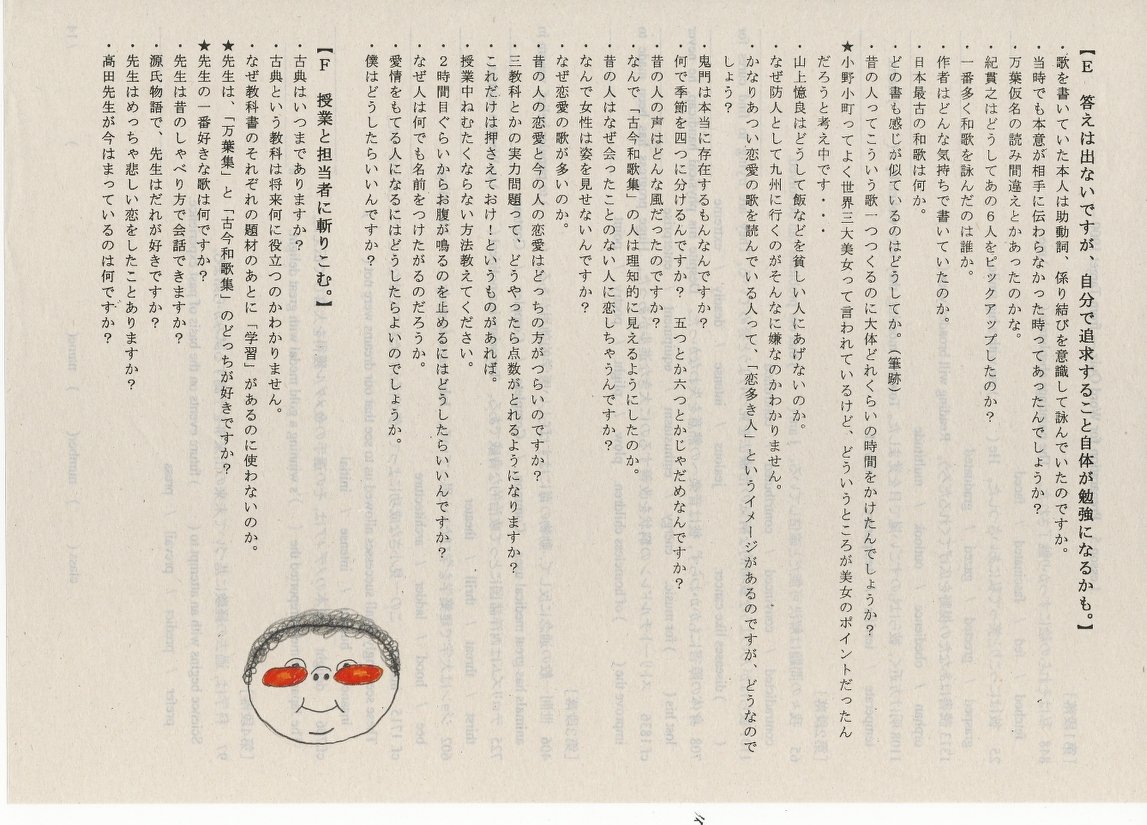 【E　答えは出ないですが、自分で追求すること自体が勉強になるかも。】
・歌を書いていた本人は助動詞、係り結びを意識して詠んでいたのですか。
・当時でも本意が相手に伝わらなかった時ってあったんでしょうか？
・万葉仮名の読み間違えとかあったのかな。
・紀貫之はどうしてあの６人をピックアップしたのか？
・一番多く和歌を詠んだのは誰か。
・作者はどんな気持ちで書いていたのか。
・日本最古の和歌は何か。
・どの書も感じが似ているのはどうしてか。（筆跡）
・昔の人ってこういう歌一つつくるのに大体どれくらいの時間をかけたんでしょうか？
★小野小町ってよく世界三大美女って言われているけど、どういうところが美女のポイントだったん
だろうと考え中です・・・
・山上憶良はどうして飯などを貧しい人にあげないのか。
・なぜ防人として九州に行くのがそんなに嫌なのかわかりません。
・かなりあつい恋愛の歌を読んでいる人って、「恋多き人」というイメージがあるのですが、どうなので
しょう？
・鬼門は本当に存在するもんなんですか？
・何で季節を四つに分けるんですか？　五つとか六つとかじゃだめなんですか？
・昔の人の声はどんな風だったのですか？
・なんで「古今和歌集」の人は理知的に見えるようにしたのか。
・昔の人はなぜ会ったことのない人に恋しちゃうんですか？
・なんで女性は姿を見せないんですか？
・なぜ恋愛の歌が多いのか。
・昔の人の恋愛と今の人の恋愛はどっちの方がつらいのですか？
・三教科とかの実力問題って、どうやったら点数がとれるようになりますか？
・これだけは押さえておけ！というものがあれば。
・授業中ねむたくならない方法教えてください。
・２時間目ぐらいからお腹が鳴るのを止めるにはどうしたらいいんですか？
・なぜ人は何でも名前をつけたがるのだろうか。
・愛情をもてる人になるにはどうしたらよいのでしょうか。
・僕はどうしたらいいんですか？
【F　授業と担当者に斬りこむ。】
・古典はいつまでありますか？
・古典という教科は将来何に役立つのかわかりません。
・なぜ教科書のそれぞれの題材のあとに「学習」があるのに使わないのか。
★先生は、「万葉集」と「古今和歌集」のどっちが好きですか？
★先生の一番好きな歌は何ですか？
・先生は昔のしゃべり方で会話できますか？
・源氏物語で、先生はだれが好きですか？
・先生はめっちゃ悲しい恋をしたことありますか？
・高田先生が今はまっているのは何ですか？